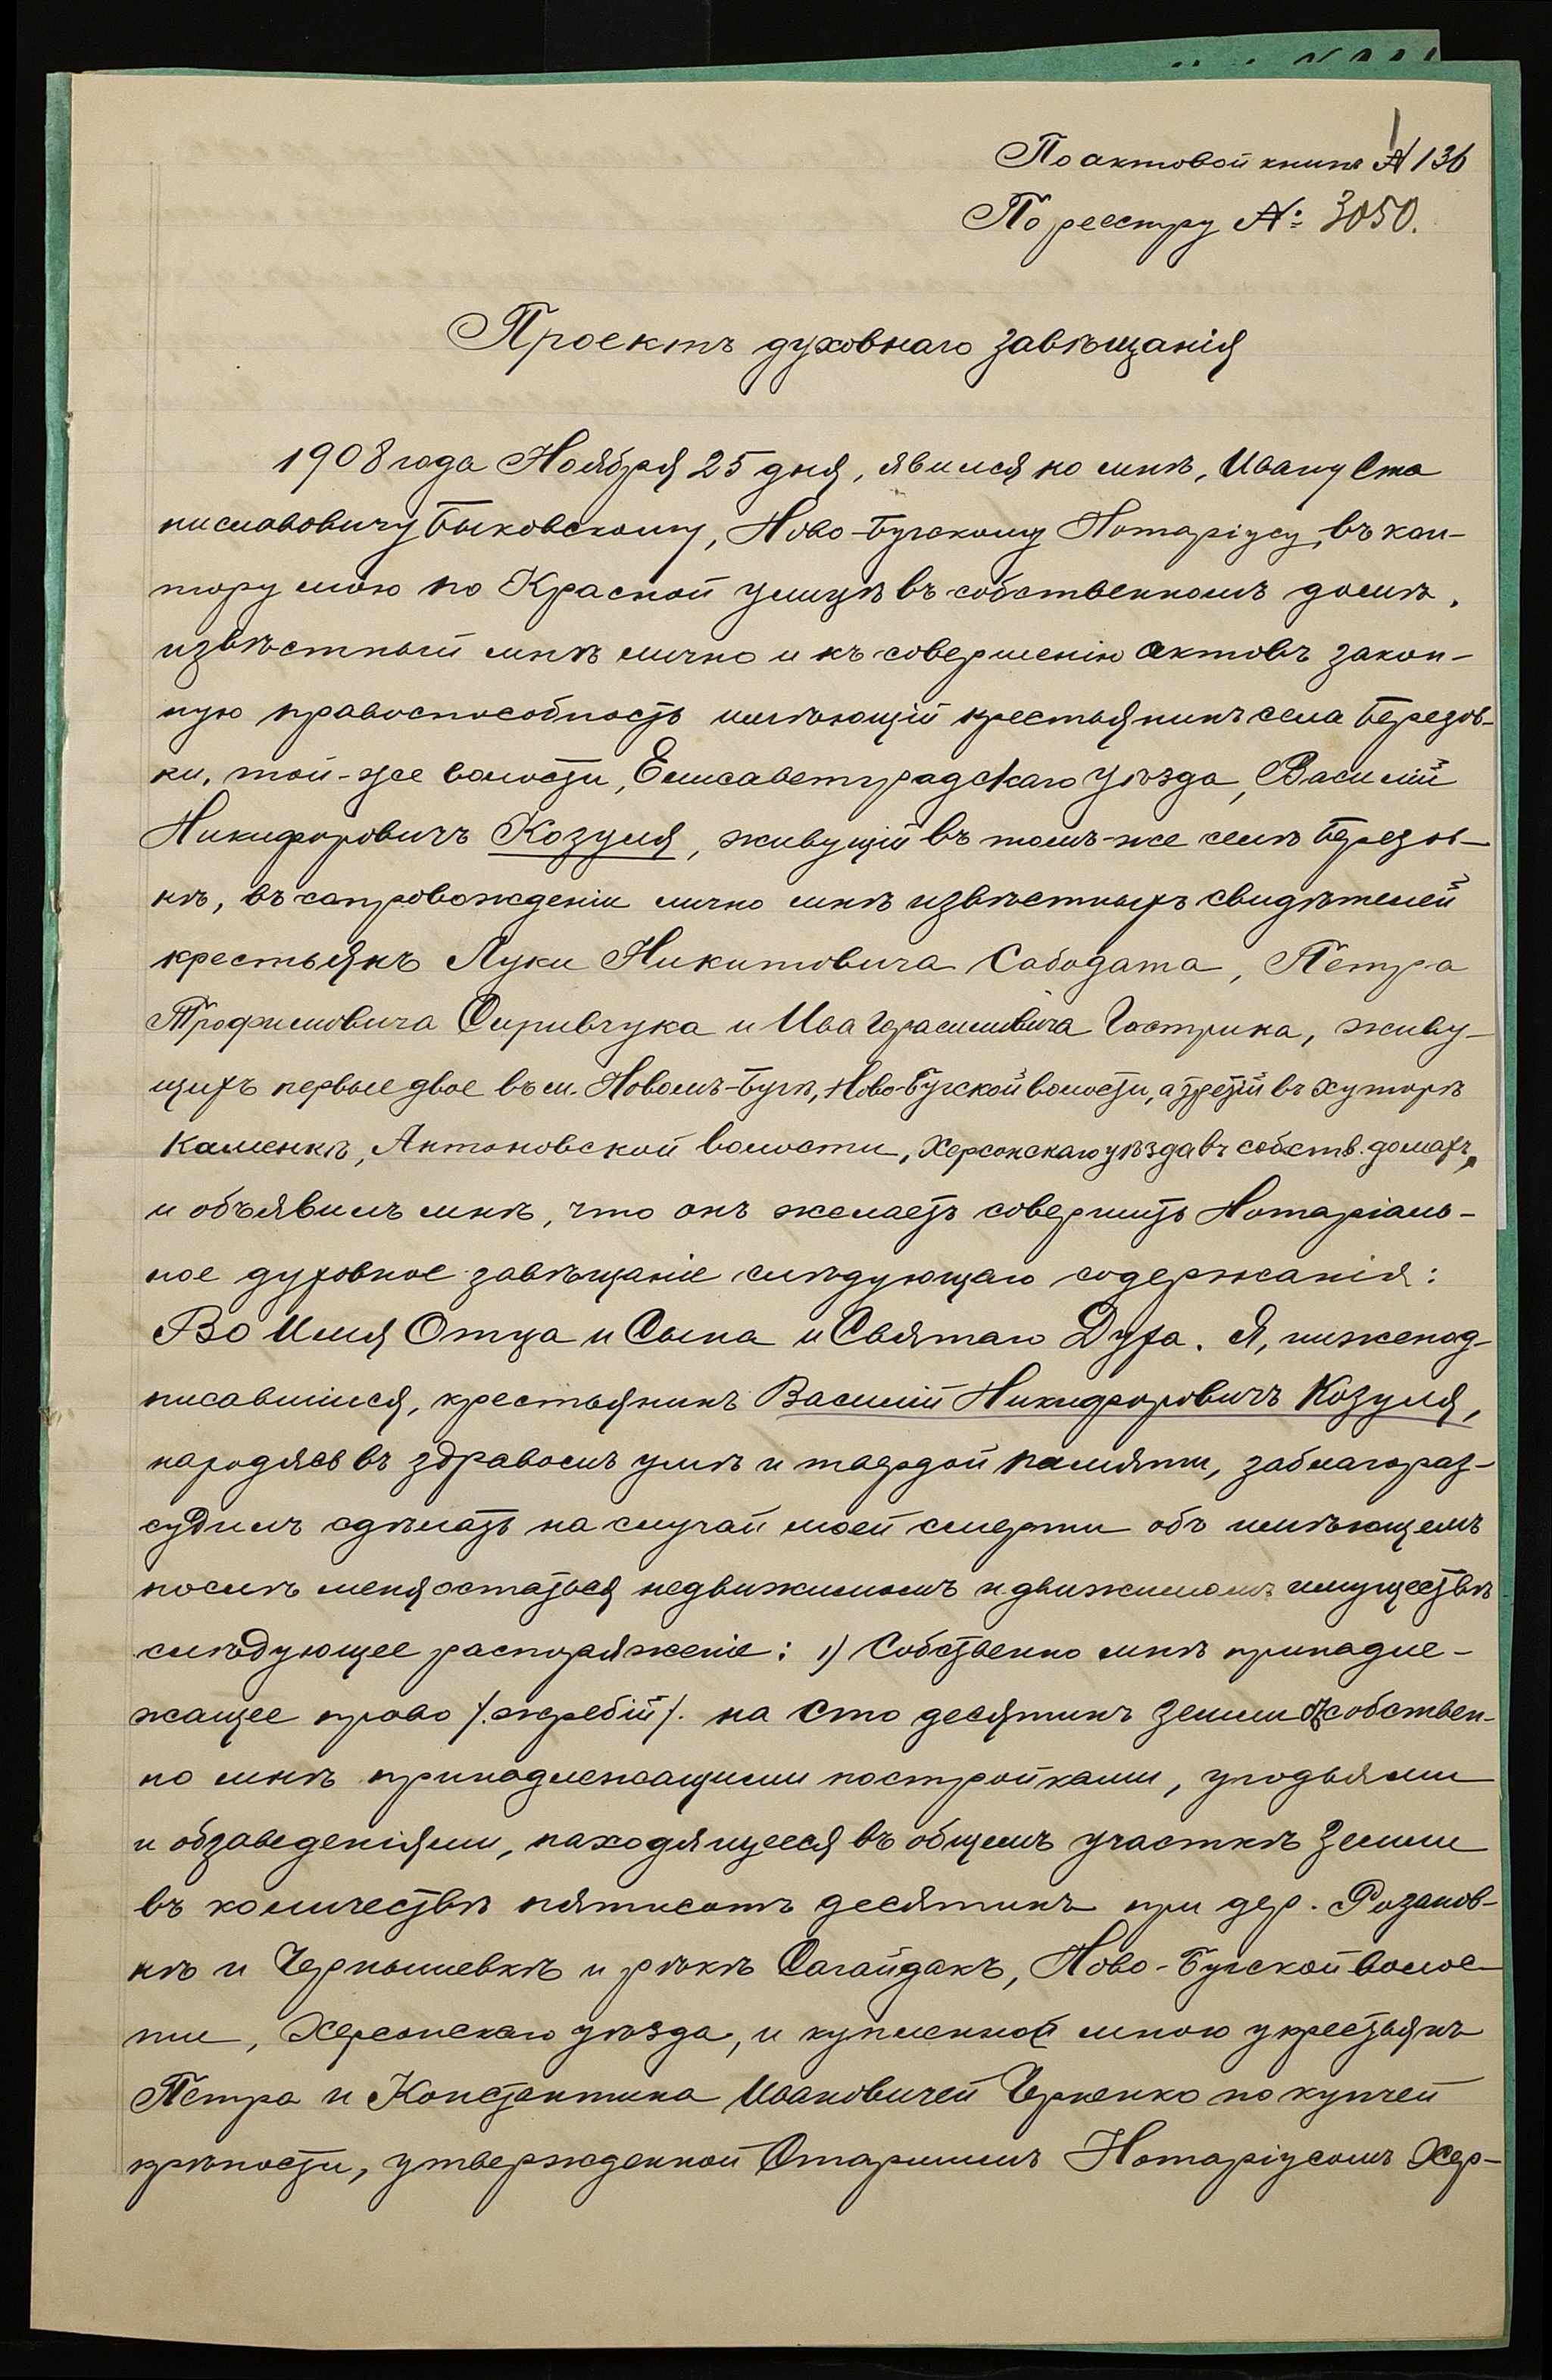 1
По актовой книге № 136
По реестру №: 3050.
Проектъ духовнаго завѣщанія
1908 года Ноября 25 дня, явился ко мнѣ, Ивану Ста
ниславовичу Быковскому, Ново-Бугскому Нотаріусу, въ кон-
тору мою по Красной улицѣ въ собственномъ домѣ,
извѣстный мнѣ лично и къ совершенію актовъ закон-
ную правоспособность имѣющій крестьянинъ села Березов-
ки, той-же волости, Елисаветградскаго уѣзда, Василій
Никифоровичъ Козуля, живущій въ томъ-же селѣ Березов-
кѣ, въ сопровожденіи лично мнѣ извѣстныхъ свидѣтелей
крестьянъ Луки Никитовича Сободаша, Петра
Трофимовича Сиривчука и Ива Герасимовича Гострика, живу-
щихъ первые двое въ м. Новомъ-Бугѣ, Ново-Бугской волости, а третій въ хуторѣ
Каменкѣ, Антоновской волости, Херсонскаго уѣзда въ собств. домахъ,
и объявилъ мнѣ, что онъ желаетъ совершить Нотаріаль-
ное духовное завѣщаніе слѣдующаго содержанія:
Во Имя Отца и Сына и Святаго Духа. Я, нижепод-
писавшійся, крестьянинъ Василій Никифоровичъ Козуля,
находясь въ здравомъ умѣ и твердой памяти, заблагораз-
судилъ сдѣлать на случай моей смерти объ имѣющемъ
послѣ меня остаться недвижимомъ и движимомъ имуществѣ
слѣдующее распоряженіе: 1) Собственно мнѣ принадле-
жащее право /. жребій /. на сто десятинъ земли съ собствен-
но мнѣ принадлежащими постройками, угодьями
и обзаведеніями, находящееся въ общемъ участкѣ земли
въ количествѣ пятисотъ десятинъ при дер. Розанов-
кѣ и Чернышевкѣ и рѣкѣ Сагайдакъ, Ново-Бугской волос-
ти, Херсонскаго уѣзда, и купленной мною у крестьянъ
Петра и Константина Ивановичей Черненко по купчей
крѣпости, утвержденной Старшимъ Нотаріусомъ Хер-